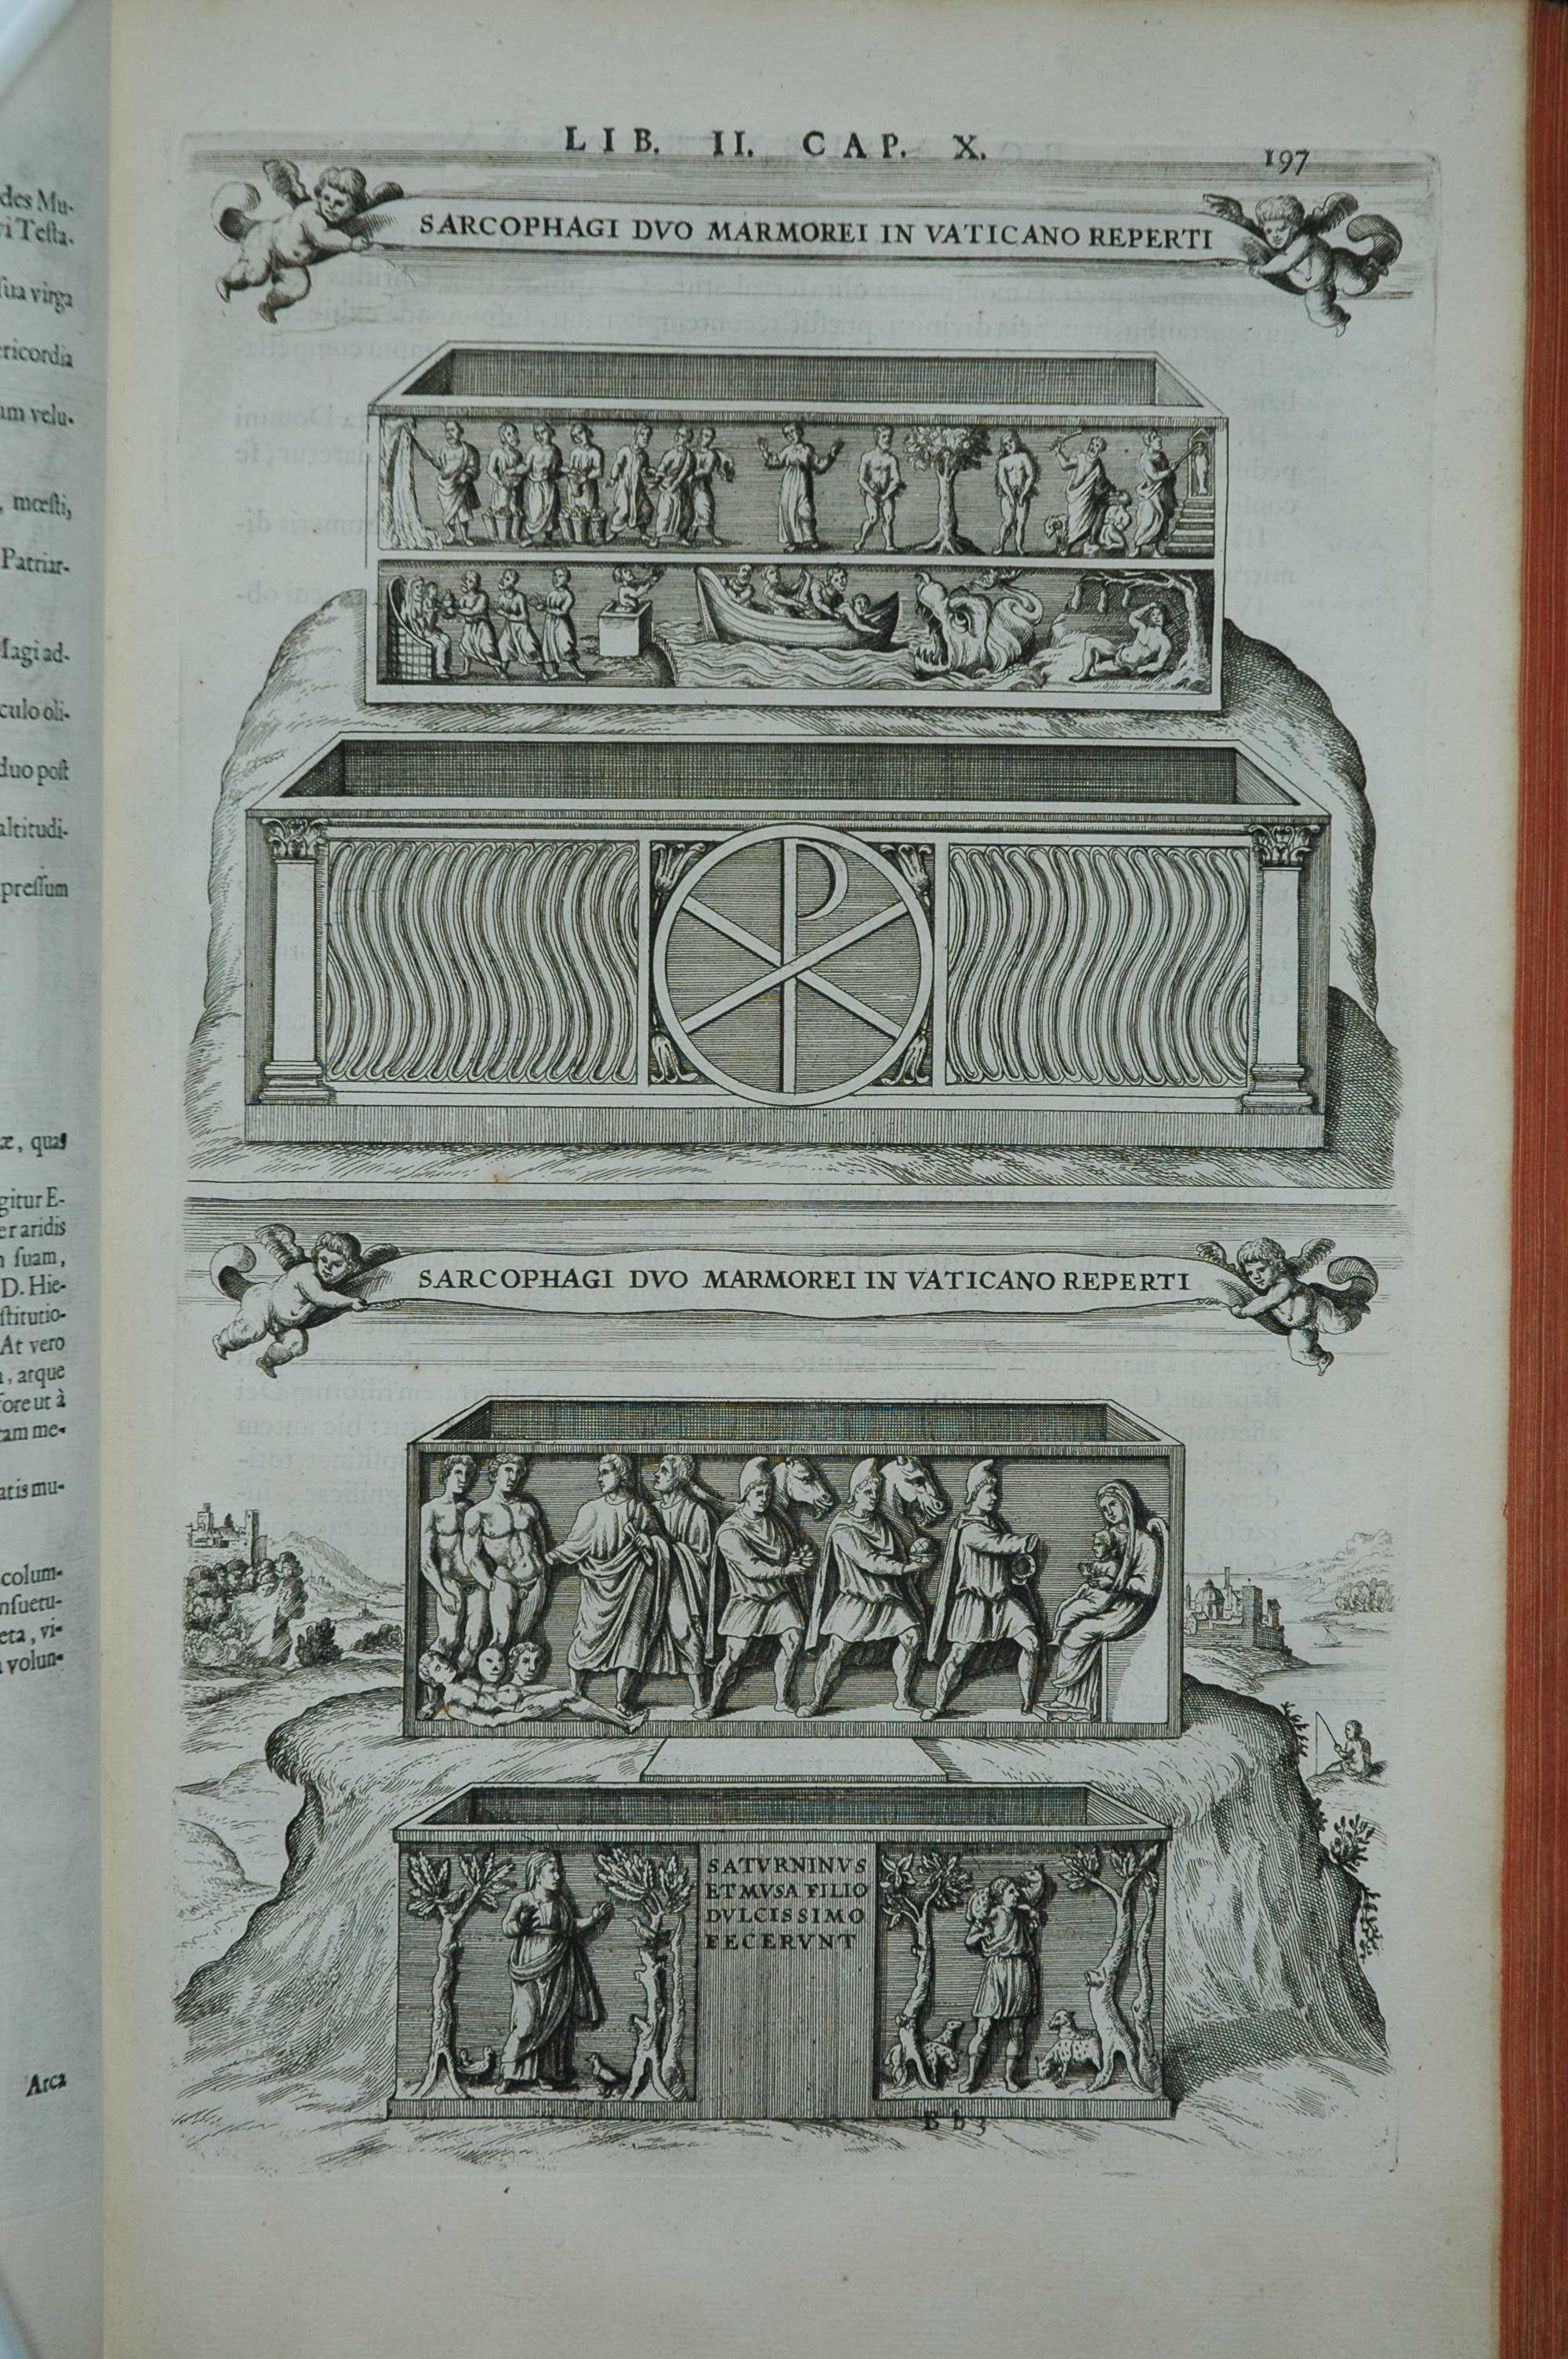 LIB. II. CAP. X.
197
SARCOPHAGI DVO MARMOREI IN VATICANO REPERTI
SARCOPHAGI DVO MARMOREI IN VATICANO REPERTI
SATVRNINVS
ET MVSA FILIO
DVLCISSIMO
FECERVNT
B b 3
des Mu-
i Teſta-
ſua virga
ericordia
um velu-
mœſti,
Patriar-
Magi ad-
culo oli-
duo poſt
altitudi-
preſſum
æ, quas
gitur E-
er aridis
ſuam,
D. Hie-
ſtitutio-
At vero
, atque
fore ut à
tam me-
atis mu-
colum-
nſuetu-
eta, vi-
volun-
Arca